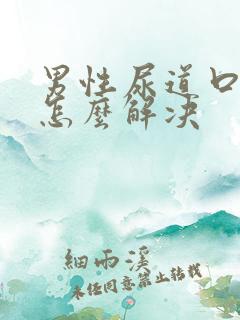 男性尿道口
怎麼解决
細雨溪
未経同意禁止转載